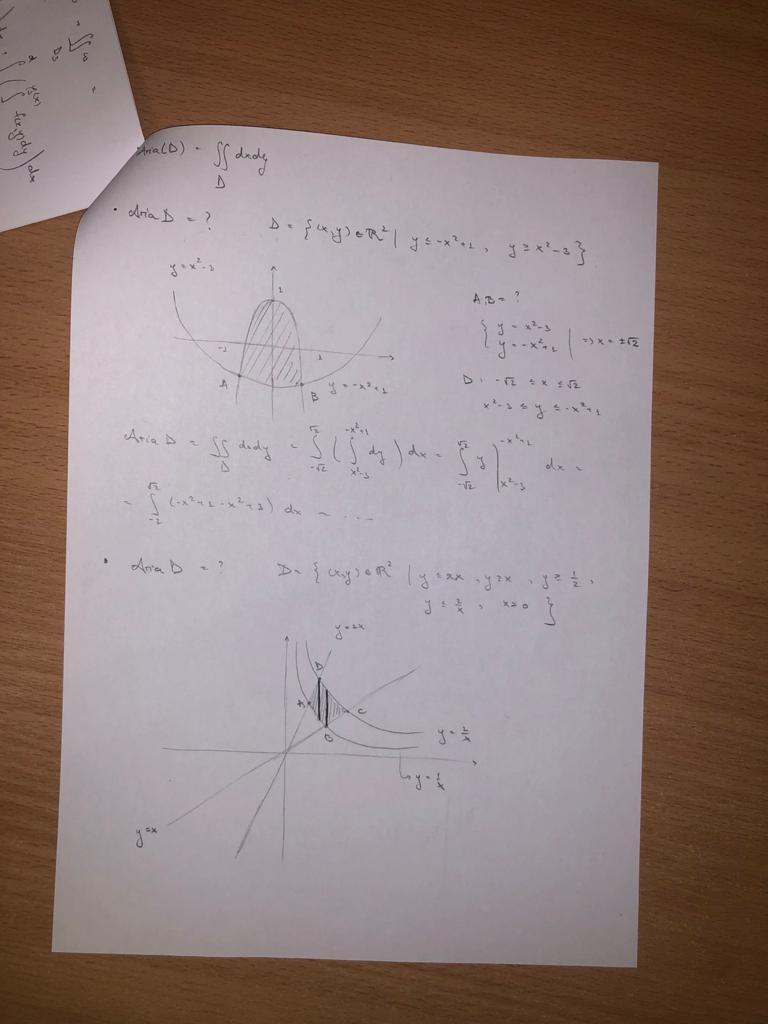 Aria(D) = ∬_D dxdy
• Aria D = ? D = {(x,y) ∈ ℝ² | y ≤ -x²+1, y ≥ x²-3}
y = x²-3
1
-1 1
A B y = -x²+1
A,B = ?
{ y = x²-3
y = -x²+1 | => x = ±√2
D: -√2 ≤ x ≤ √2
x²-3 ≤ y ≤ -x²+1
Aria D = ∬_D dxdy = ∫_{-√2}^{√2} ( ∫_{x²-3}^{-x²+1} dy ) dx = ∫_{-√2}^{√2} y |_{x²-3}^{-x²+1} dx =
= ∫_{-2}^{√2} (-x²+1-x²+3) dx = ...
• Aria D = ? D = {(x,y) ∈ ℝ² | y ≤ 2x, y ≥ x, y ≥ 1/2,
y ≤ 2/x, x ≥ 0 }
y=2x
D
A C
B
y = 2/x
y = 1/x
y=x
∬
D₃
=
f(x,y)dy) dx